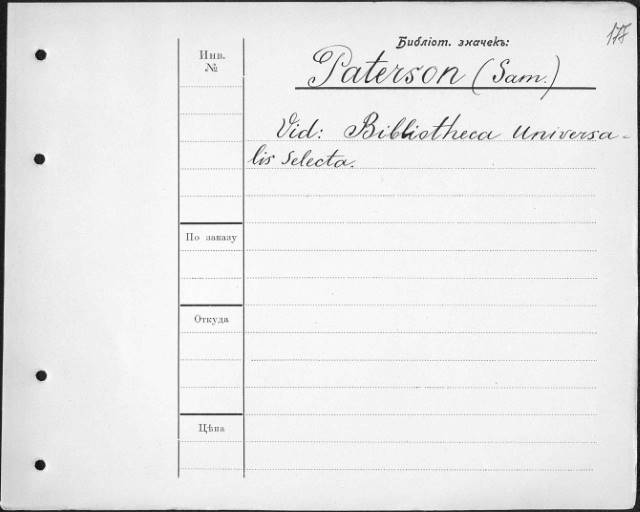 177
Библіот. значекъ:
Инв.
№
Paterson (Sam.)
Vid: Bibliotheca Universa-
lis Selecta.
По заказу
Откуда
Цѣна